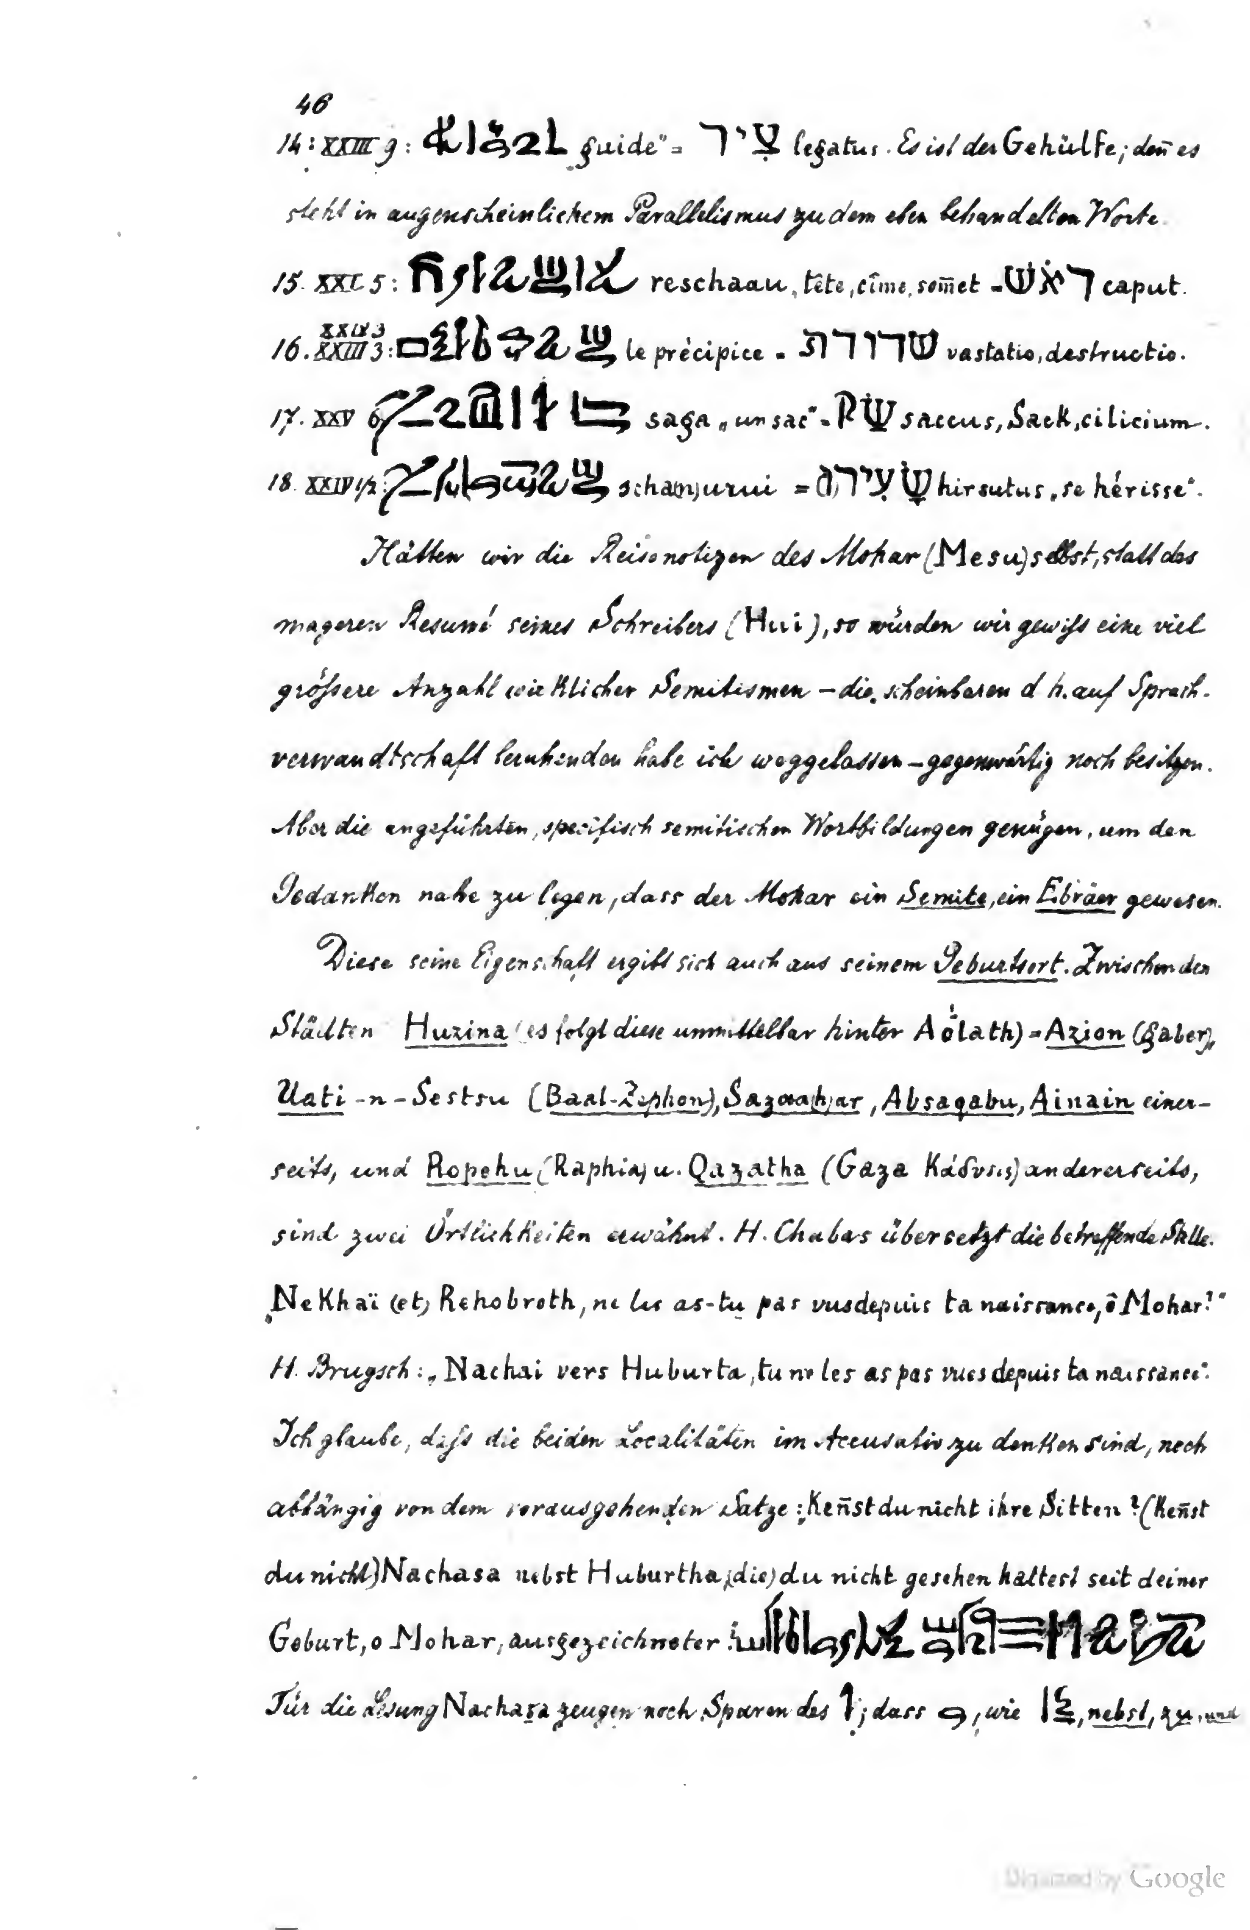 46
14: XXIII 9: guide" = צִיר legatus. Es ist der Gehülfe; deñ es
steht in augenscheinlichem Parallelismus zu dem eben behandelten Worte.
15. XXI 5: reschaau, tête, cîme, som̄et = רֹאשׁ caput.
16. XXIX 3 XXIII 3: le précipice = שדודת vastatio, destructio.
17. XXV 6 saga „un sac" = שַׂק saccus, Sack, cilicium.
18. XXIV 1/2: scha(n)urui = hirsutus „se hérisse".
Hätten wir die Reisenotizen des Mohar (Mesu) selbst, statt des
mageren Resumé seines Schreibers (Hui), so würden wir gewiſs eine viel
gröſsere Anzahl wirklicher Semitismen – die scheinbaren d h. auf Sprach-
verwandtschaft beruhenden habe ich weggelassen – gegenwärtig noch besitzen.
Aber die angeführten, specifisch semitischen Wortbildungen genügen, um den
Gedanken nahe zu legen, dass der Mohar ein Semite, ein Ebräer gewesen.
Diese seine Eigenschaft ergibt sich auch aus seinem Geburtsort. Zwischen den
Städten Huzina (es folgt diese unmittelbar hinter Aölath) = Azion (gaber),
Uati-n-Sestsu (Baal-Zephon), Sazaa(h)ar, Absaqabu, Ainain einer-
seits, und Ropehu (Raphia) u. Qazatha (Gaza Κάδυτις) andererseits,
sind zwei Örtlichkeiten erwähnt. H. Chabas übersetzt die betreffende Stelle:
„NeKhaï (et) Rehobroth, ne les as-tu pas vus depuis ta naissance, ô Mohar?"
H. Brugsch: „Nachai vers Huburta, tu ne les as pas vues depuis ta naissance".
Ich glaube, daſs die beiden Localitäten im Accusativ zu denken sind, noch
abhängig von dem vorausgehenden Satze: „Keñst du nicht ihre Sitten? (Keñst
du nicht) Nachasa nebst Huburtha, (die) du nicht gesehen hattest seit deiner
Geburt, o Mohar, ausgezeichneter!
Für die Lesung Nachasa zeugen noch Spuren des ; dass , wie , nebst, zu, und